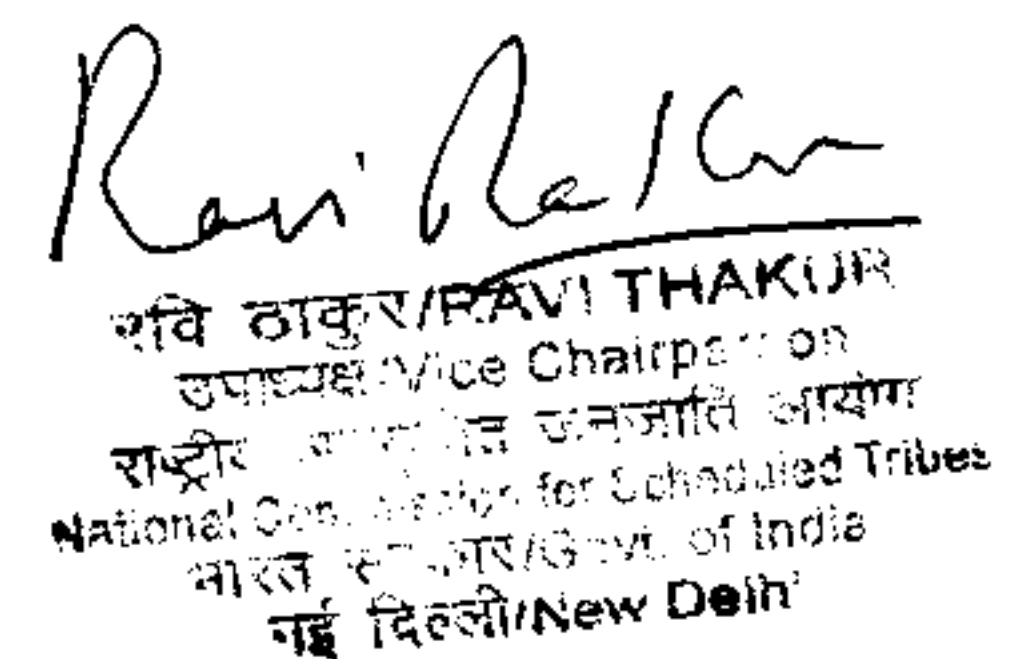 Ravi
रवि ठाकुर/RAVI THAKUR
उपाध्यक्ष/Vice Chairperson
राष्ट्रीय जनजाति आयोग
National Commission for Scheduled Tribes
भारत सरकार/Govt. of India
नई दिल्ली/New Delhi